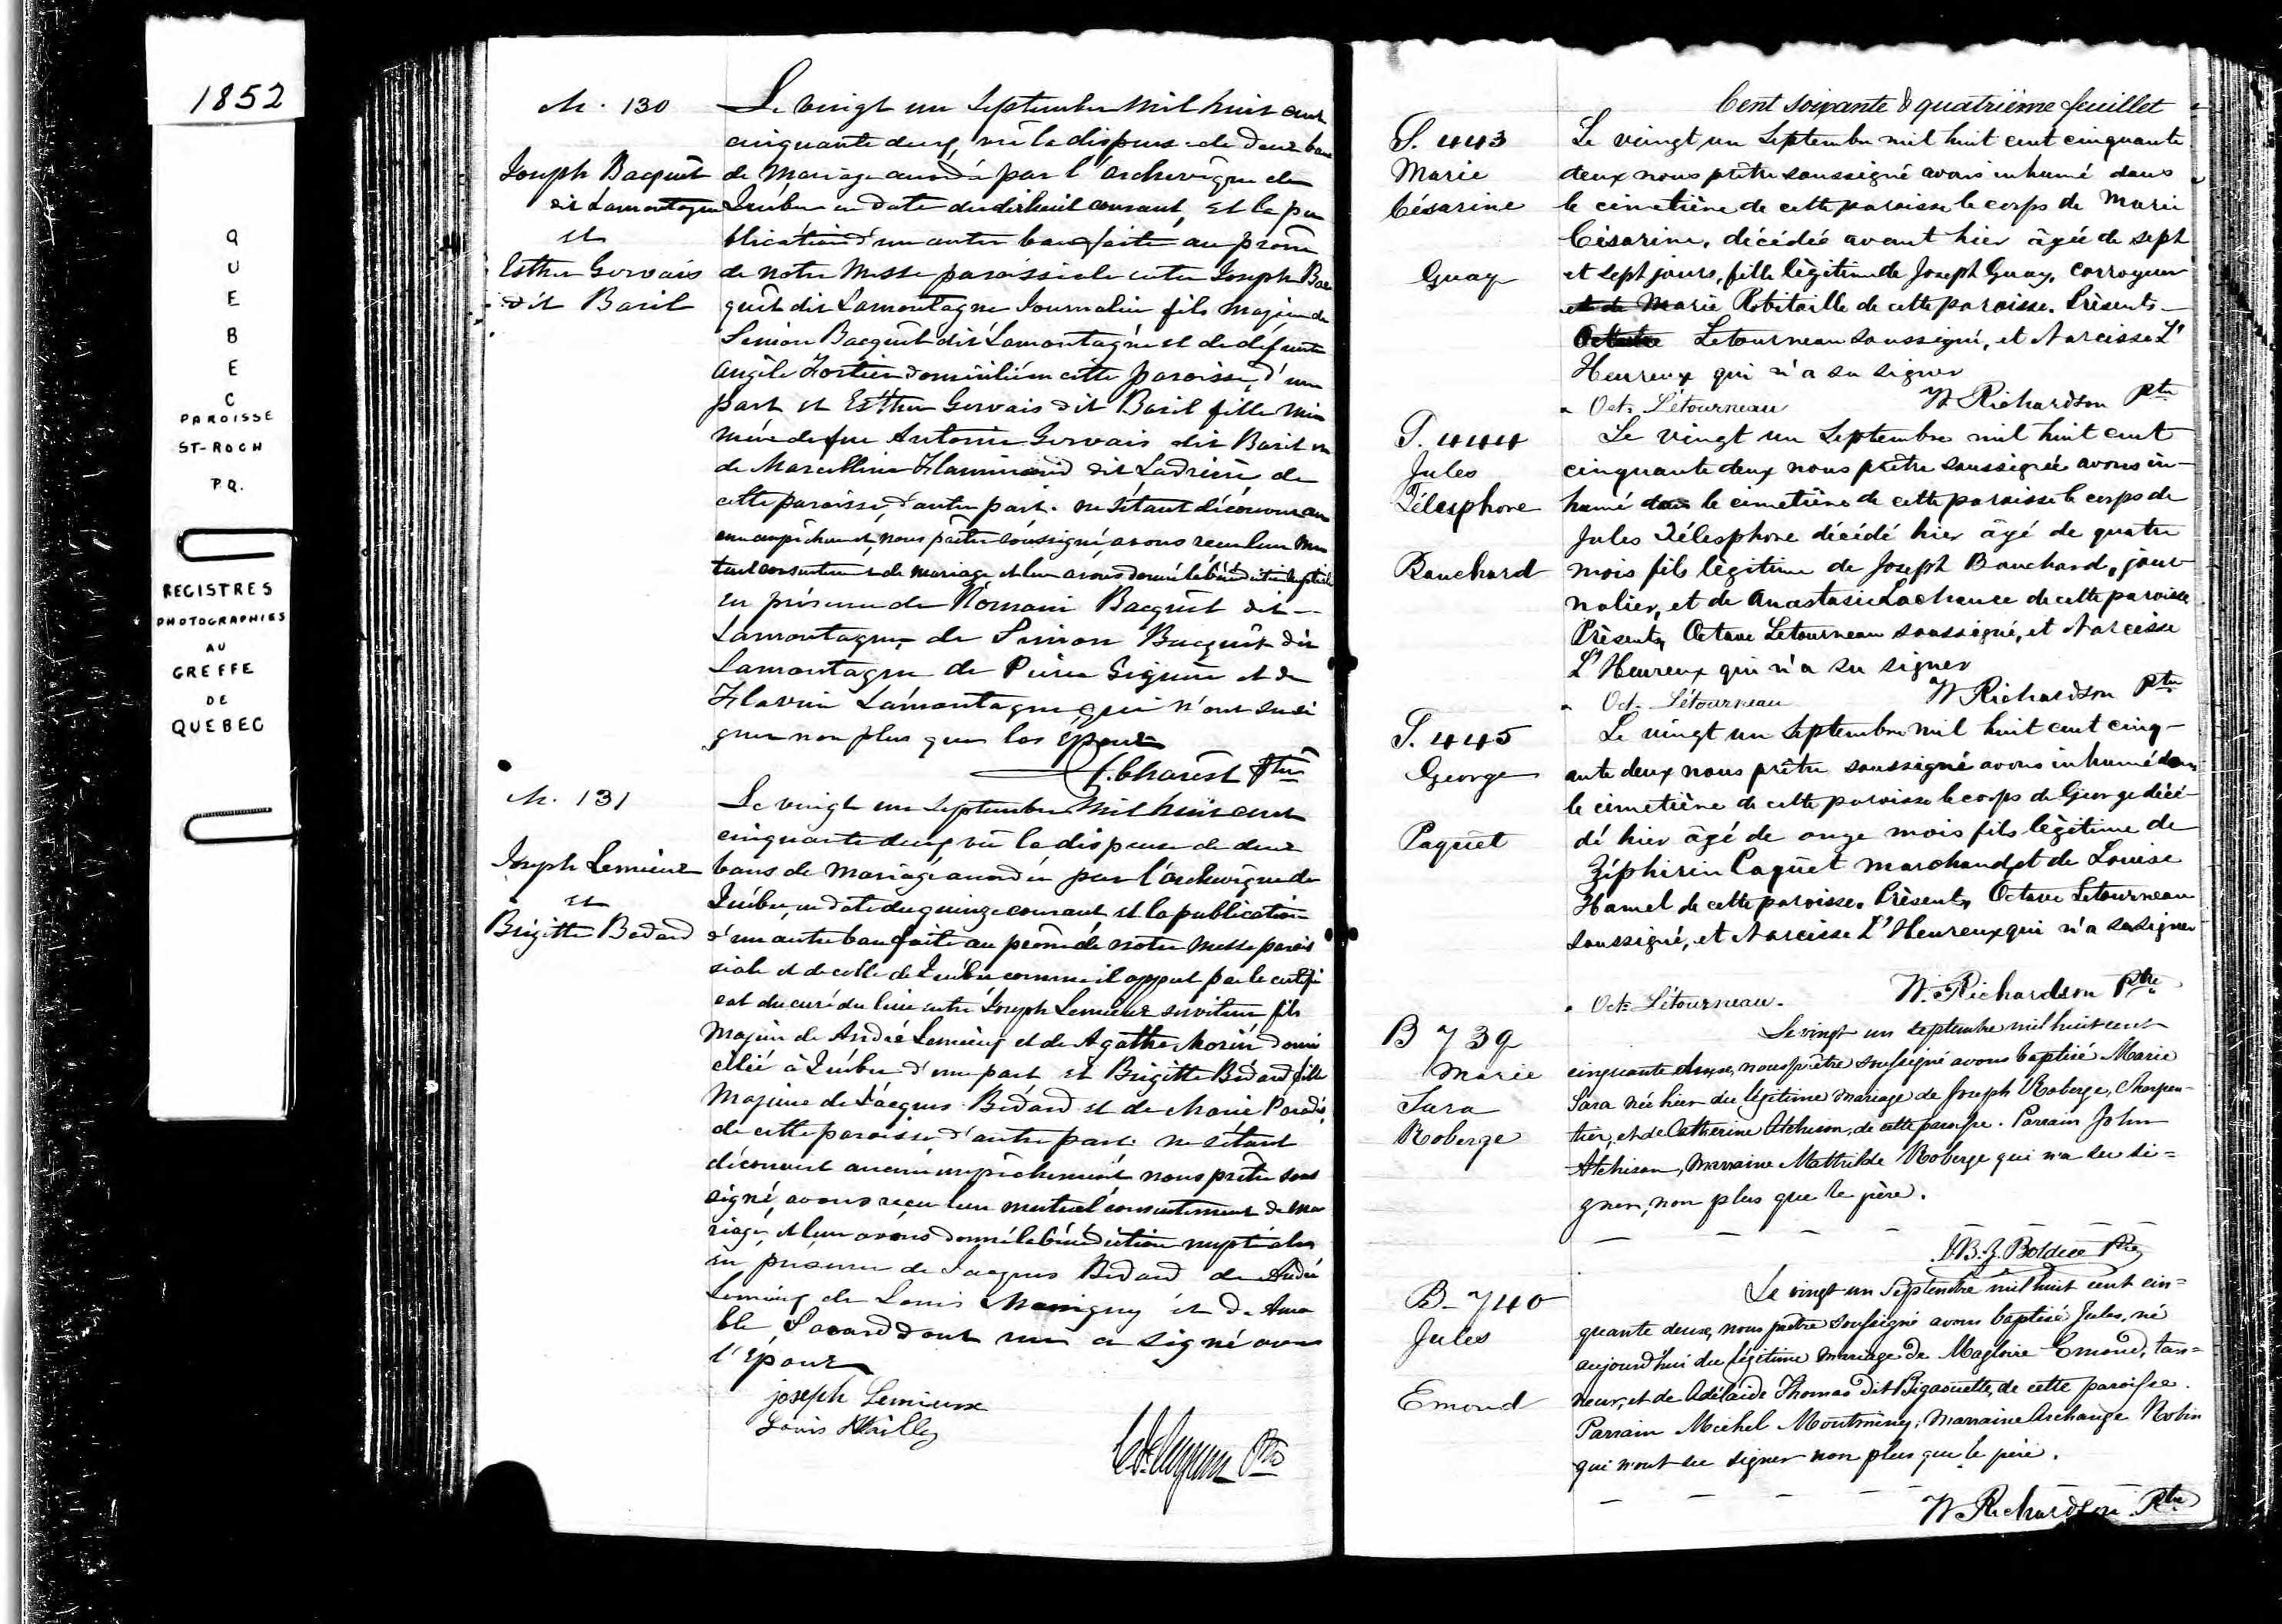 1852
QUEBEC
PAROISSE
ST-ROCH
P.Q.
REGISTRES
PHOTOGRAPHIES
AU
GREFFE
DE
QUEBEC
M. 130
Joseph Bacquêt
dit Lamontagne
et
Esther Gervais
dit Baril
Le vingt un Septembre mil huit cent
cinquante deux, vu la dispense de deux bans
de mariage accordée par l'archevêque de
Québec en date du dixhuit courant, et la pu
blication d'un autre ban faite au prône
de notre Messe paroissiale entre Joseph Bac
quêt dit Lamontagne Journalier fils majeur de
Simon Bacquêt dit Lamontagne et de défunte
Angèle Fortier domicilié en cette paroisse, d'une
part et Esther Gervais dit Baril fille mi
neure de feu Antoine Gervais dit Baril et
de Marcelline Flammand dit Ladrière de
cette paroisse, d'autre part. ne s'étant découvert au
cun empêchement, nous prêtre soussigné, avons reçu leur mu
tuel consentement de mariage et leur avons donné la bénédiction nuptiale
en présence de Romain Bacquêt dit
Lamontagne, de Simon Bacquêt dit
Lamontagne de Pierre Giguère et de
Flavien Lamontagne qui n'ont su si
gner non plus que les époux
Charest Ptre
M. 131
Joseph Lemieux
et
Brigitte Bedard
Le vingt un Septembre mil huit cent
cinquante deux, vu la dispense de deux
bans de mariage accordée par l'archevêque de
Québec, en date du quinze courant et la publication
d'un autre ban faite au prône de notre Messe parois
siale et de celle de Québec comme il appert par le certifi
cat du curé du lieu entre Joseph Lemieux serviteur fils
majeur de André Lemieux et de Agathe Morin domi
cilié à Québec d'une part et Brigitte Bédard fille
majeure de Jacques Bédard et de Marie Paradis,
de cette paroisse d'autre part. ne s'étant
découvert aucun empêchement nous prêtre sous
signé, avons reçu leur mutuel consentement de ma
riage, et leur avons donné la bénédiction nuptiale
en présence de Jacques Bedard de André
Lemieux de Louis et de Ama
ble Savard dont un a signé avec
l'Epoux
joseph Lemieux
Louis
Ptre
Cent soixante & quatrième feuillet
S. 443
Marie
Césarine
Guay
Le vingt un Septembre mil huit cent cinquante
deux nous prêtre soussigné avons inhumé dans
le cimetière de cette paroisse le corps de Marie
Césarine, décédée avant hier âgée de sept
et sept jours, fille légitime de Joseph Guay, corroyeur
et de Marie Robitaille de cette paroisse. Présents
Octave Letourneau soussigné, et Narcisse L'
Heureux qui n'a su signer
Oct: Létourneau W Richardson Ptre
S. 444
Jules
Télesphore
Bouchard
Le vingt un Septembre mil huit cent
cinquante deux nous prêtre soussigné avons in-
humé dans le cimetière de cette paroisse le corps de
Jules Télesphore décédé hier âgé de quatre
mois fils légitime de Joseph Bouchard, jour-
nalier, et de Anastasie Lachance de cette paroisse
Présents, Octave Letourneau soussigné, et Narcisse
L'Heureux qui n'a su signer
Oct. Létourneau W Richardson Ptre
S. 445
George
Paquet
Le vingt un Septembre mil huit cent cinq-
ante deux nous prêtre soussigné avons inhumé dans
le cimetière de cette paroisse le corps de George décé-
dé hier âgé de onze mois fils légitime de
Zéphirin Paquet marchand et de Louise
Hamel de cette paroisse. Présents, Octave Letourneau
soussigné, et Narcisse L'Heureux qui n'a su signer
Oct: Létourneau. W. Richardson Ptre
B 739
Marie
Sara
Roberge
Le vingt un septembre mil huit cent
cinquante deux, nous prêtre soussigné avons baptisé Marie
Sara née hier du légitime mariage de Joseph Roberge, Charpen-
tier, et de Catherine Atchison, de cette paroisse. Parrain John
Atchison, marraine Mathilde Roberge qui n'a su si=
gner, non plus que le père.
J.B.Z. Bolduc Ptre
B- 740
Jules
Emond
Le vingt un Septembre mil huit cent cin=
quante deux, nous prêtre soussigné avons baptisé Jules, né
aujourd'hui du légitime mariage de Magloire Emond, tan=
neur, et de Adélaide Thomas dit Bigaouette, de cette paroisse.
Parrain Michel Montminy, marraine Archange Robin
qui n'ont su signer non plus que le père.
W Richardson Ptre